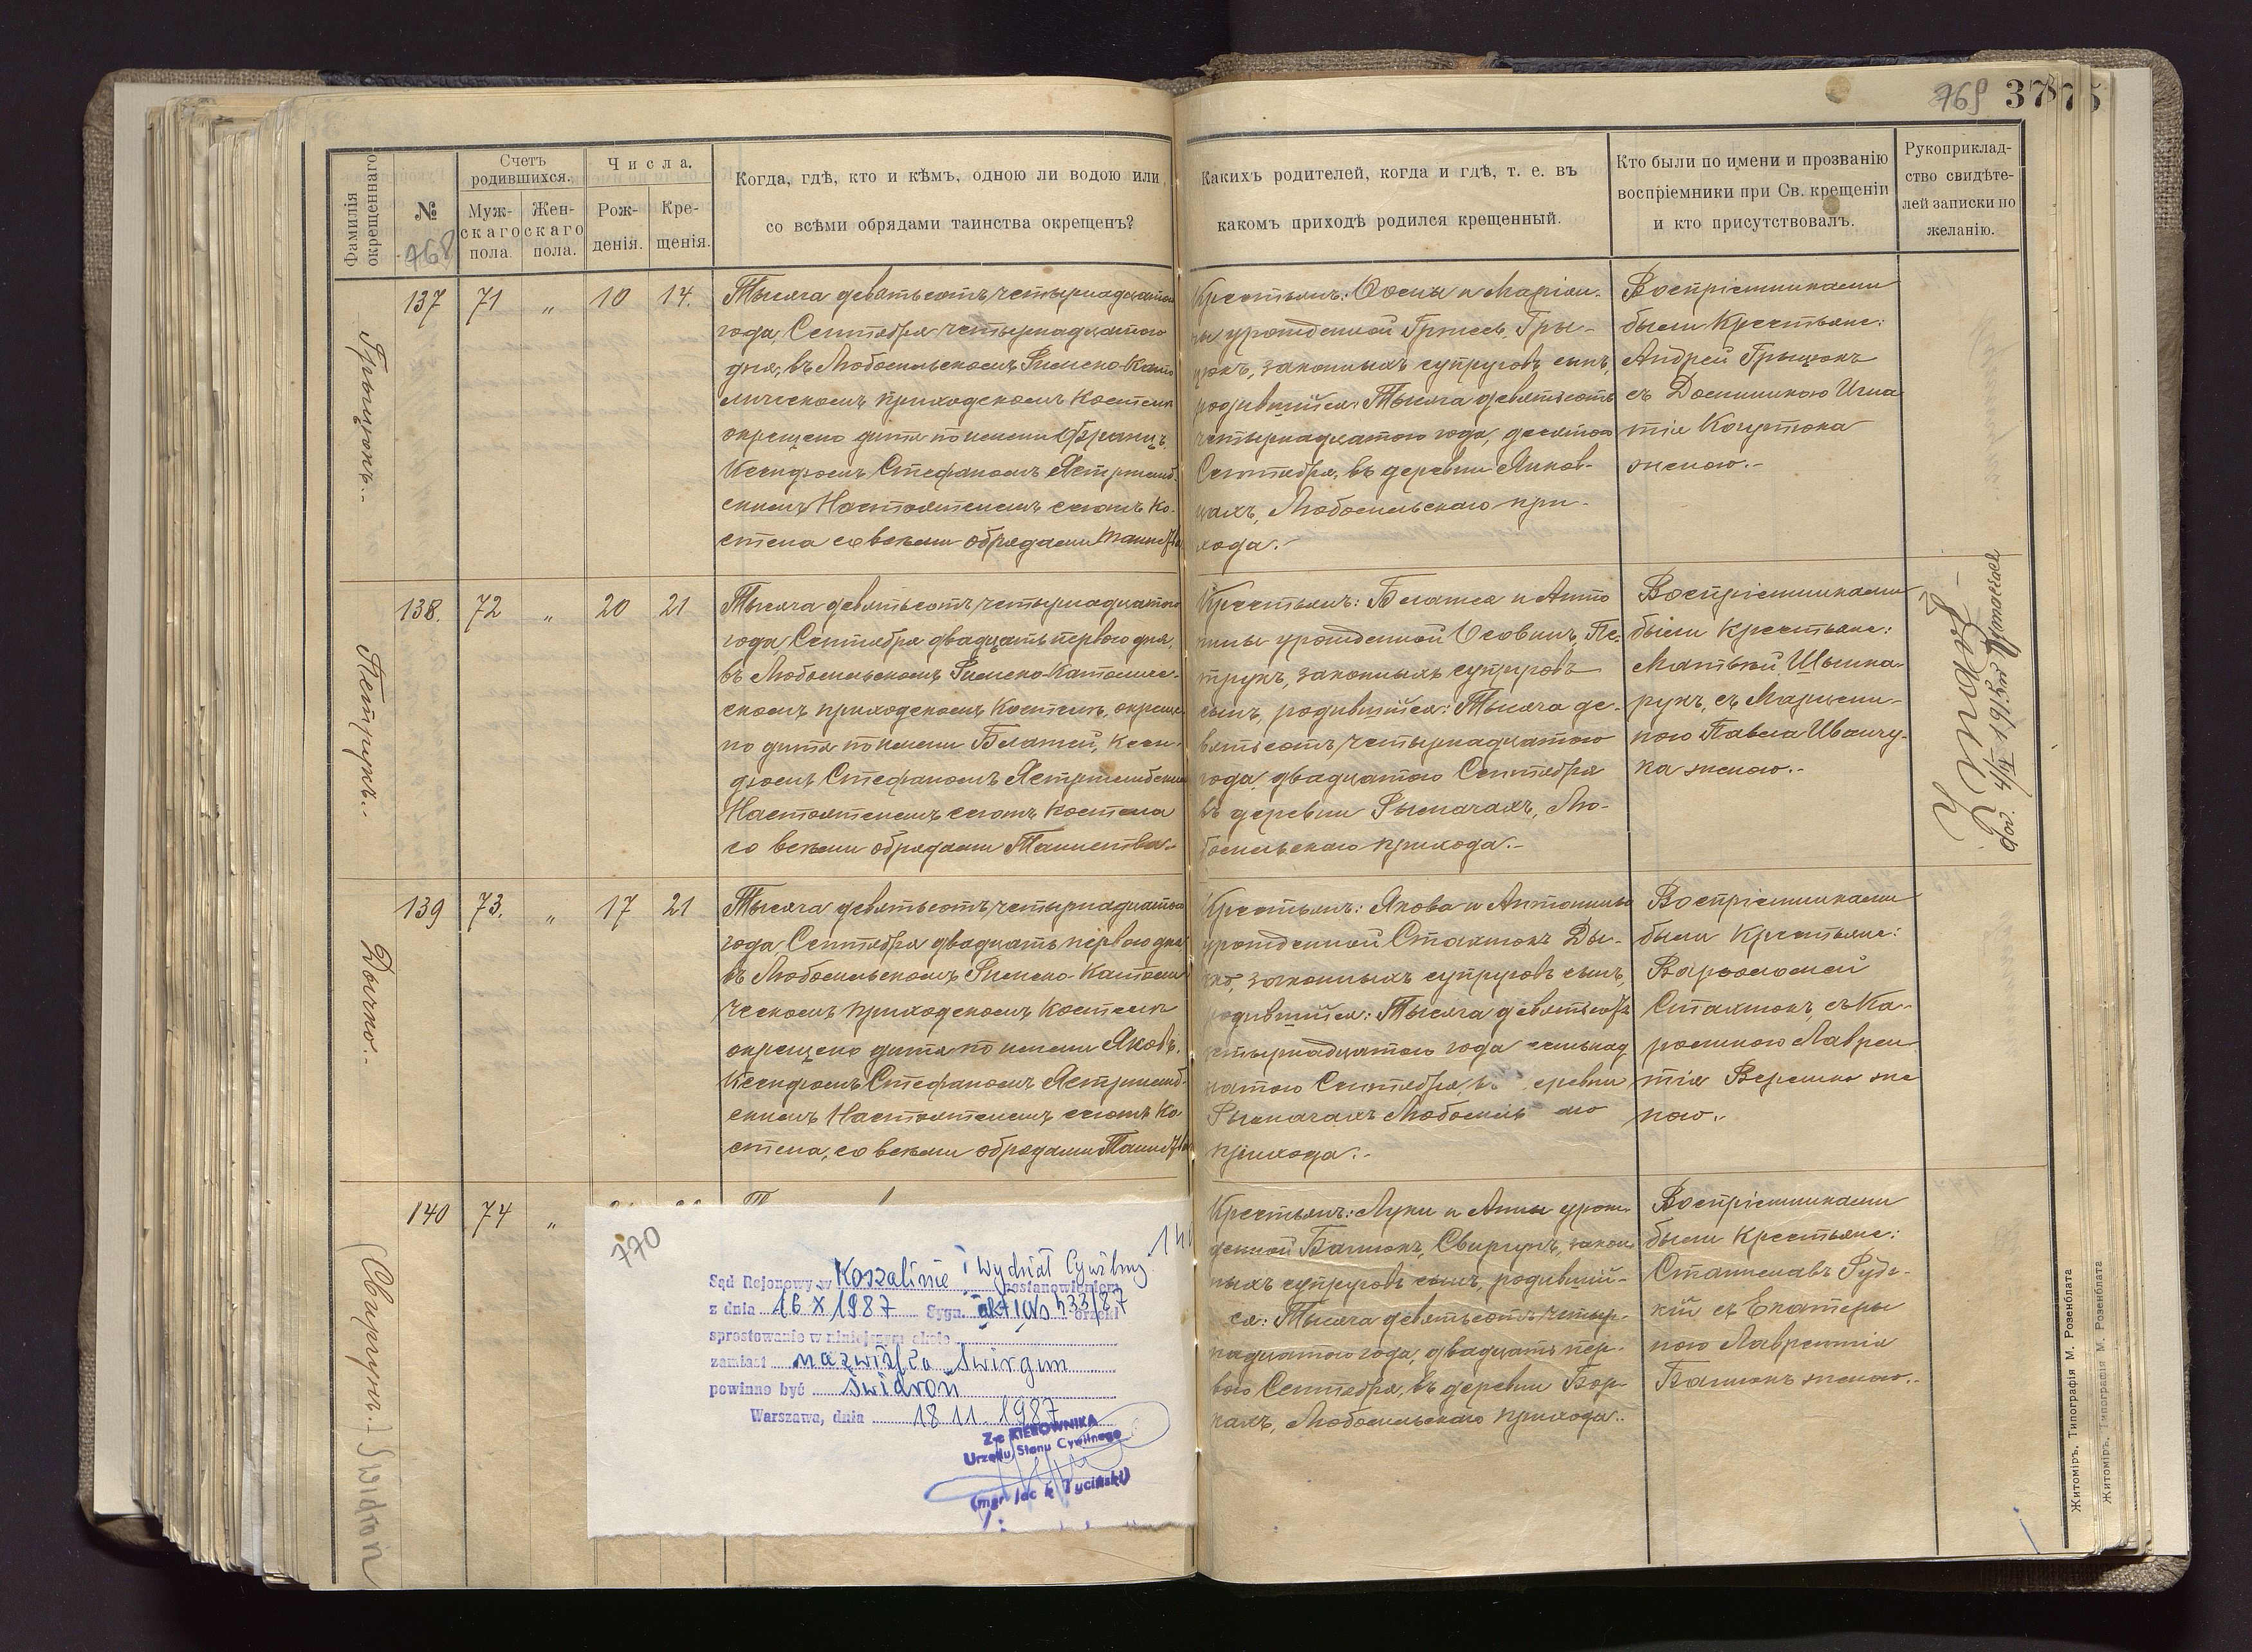 769 378 75
Фамилія окрещеннаго
№
768
Счетъ родившихся.
Мужскаго пола.
Женскаго пола.
Числа.
Рожденія.
Крещенія.
Когда, гдѣ, кто и кѣмъ, одною ли водою или
со всѣми обрядами таинства окрещенъ?
Какихъ родителей, когда и гдѣ, т. е. въ
какомъ приходѣ родился крещенный.
Кто были по имени и прозванію
воспріемники при Св. крещеніи
и кто присутствовалъ.
Рукоприклад-
ство свидѣте-
лей записки по
желанію.
Грыцюкъ.-
137 71 „ 10 14.
Тысяча девятьсотъ четырнадцатаго
года, Сентября четырнадцатаго
дня, въ Любомльскомъ Римско-Като
лическомъ приходскомъ Костелѣ
окрещено дитя по имени Францъ.
Ксендзомъ Стефаномъ Ястржемб-
скимъ Настоятелемъ сего Ко-
стела со всѣми обрядами Таинства
Крестьянъ: Осипа и Маріан-
ны урожденной Гржесь, Гры-
цюкъ, законныхъ супруговъ сынъ,
родившійся: Тысяча девятьсотъ
четырнадцатаго года, десятаго
Сентября, въ деревни Янков-
цахъ, Любомльскаго при-
хода.-
Воспріемниками
были Крестьяне:
Андрей Грыцюкъ
съ Доминикою Игна
тія Когутюка
женою.-
Петрукъ.-
138. 72 „ 20 21
Тысяча девятьсотъ четырнадцатаго
года, Сентября двадцать перваго дня,
въ Любомльскомъ Римско-Католиче-
скомъ приходскомъ Костелѣ, окреще-
но дитя по имени Блажей, Ксен-
дзомъ Стефаномъ Ястржембскимъ
Настоятелемъ сего Костела
со всѣми обрядами Таинства.-
Крестьянъ: Блажея и Анто
нины урожденной Осовикъ, Пе-
трукъ, законныхъ супруговъ
сынъ, родившійся: Тысяча де-
вятьсотъ четырнадцатаго
года, двадцатаго Сентября
въ деревни Рымачахъ, Лю-
бомльскаго прихода.-
Воспріемниками
были Крестьяне:
Матвѣй Шыка-
рукъ, съ Марцели-
ною Павла Иванчу-
ка женою.-
Дычко.-
139 73. „ 17 21
Тысяча девятьсотъ четырнадцатаго
года Сентября двадцать перваго дня
въ Любомльскомъ Римско-Католи
ческомъ приходскомъ Костелѣ
окрещено дитя по имени Яковъ,
Ксендзомъ Стефаномъ Ястржемб-
скимъ Настоятелемъ сего Ко-
стела, со всѣми обрядами Таинства
Крестьянъ: Якова и Антонины
урожденной Стахнюкъ Ды-
чко, законныхъ супруговъ сынъ,
родившійся: Тысяча девятьсотъ
четырнадцатаго года семнад
цатаго Сентября, въ деревни
Рымачахъ Любомль го
прихода.-
Воспріемниками
были Крестьяне:
Варѳоломей
Стахнюкъ, съ Ка-
ролиною Лаврен
тія Верешко же
ною.-
(Свиргунъ.) Świdroń
140 74 „
Крестьянъ: Луки и Анны урож-
денной Банюкъ, Свиргунъ, закон
ныхъ супруговъ сынъ, родившій-
ся: Тысяча девятьсотъ четыр-
надцатаго года, двадцать пер-
ваго Сентября, въ деревни Бор-
кахъ, Любомльскаго прихода.-
Воспріемниками
были Крестьяне:
Станиславъ Рудь-
кій съ Екатеры
ною Лаврентія
Банюкъ женою.-
770
Sąd Rejonowy w Koszalinie I Wydział Cywilny postanowieniem
z dnia 16 X 1987 Sygn. akt 533/87 orzekł
sprostowanie w niniejszym akcie
zamiast nazwiska Świrgun
powinno być Świdroń
Warszawa, dnia 18 11. 1987
Z-c KIEROWNIKA
Urzędu Stanu Cywilnego
Житоміръ, Типографія М. Розенблата
Житоміръ, Типографія М. Розенблата